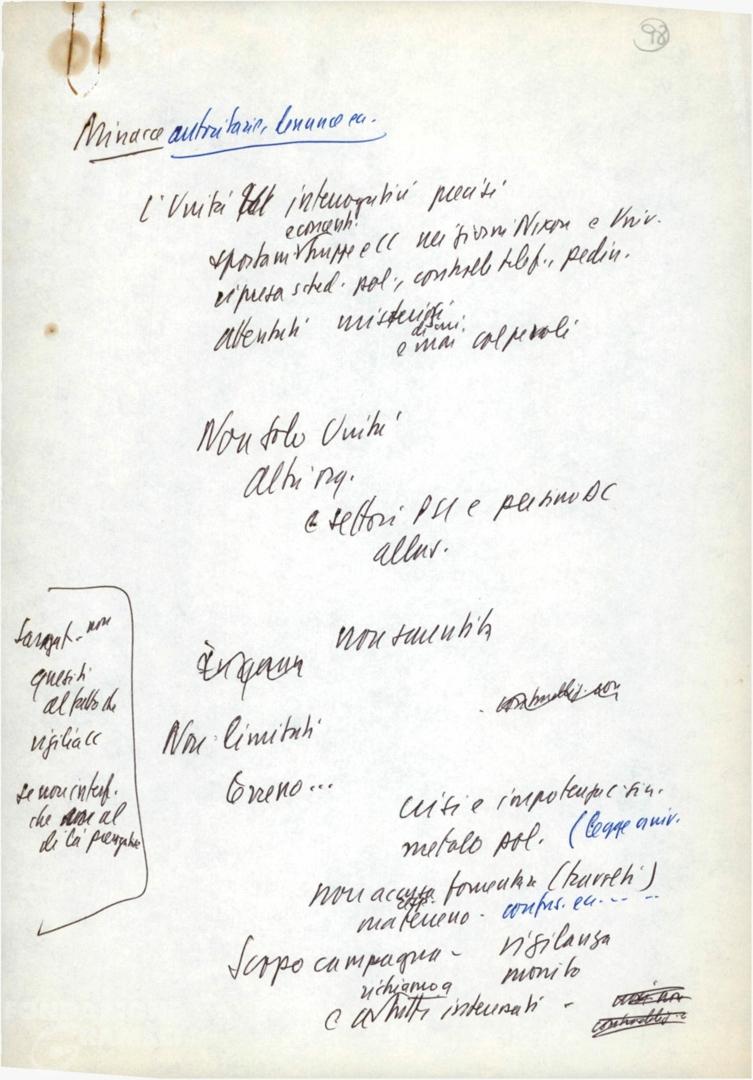 98
Minacce autoritarie,
L'Unità interrogativi precisi
e concent.
spostam. truppe ecc nei giorni Nixon e Univ.
ripresa sched. pol., controllo telef., pedin.
attentati misteriosi
e mai colpevoli
Non solo Unità
altri org.
e settori PSI e persino DC
allus.
non smentita
Saragat - non
quesiti
al fatto che
vigili acc
se non interf.
che non al
di là prerogative
Non limitati
terreno...
crisi e impotenza
metodo pol. (legge univ.
non accusa fomentare
ma terreno - confus.
Scopo campagna - vigilanza
monito
richiamo a
e a tutti interessati -